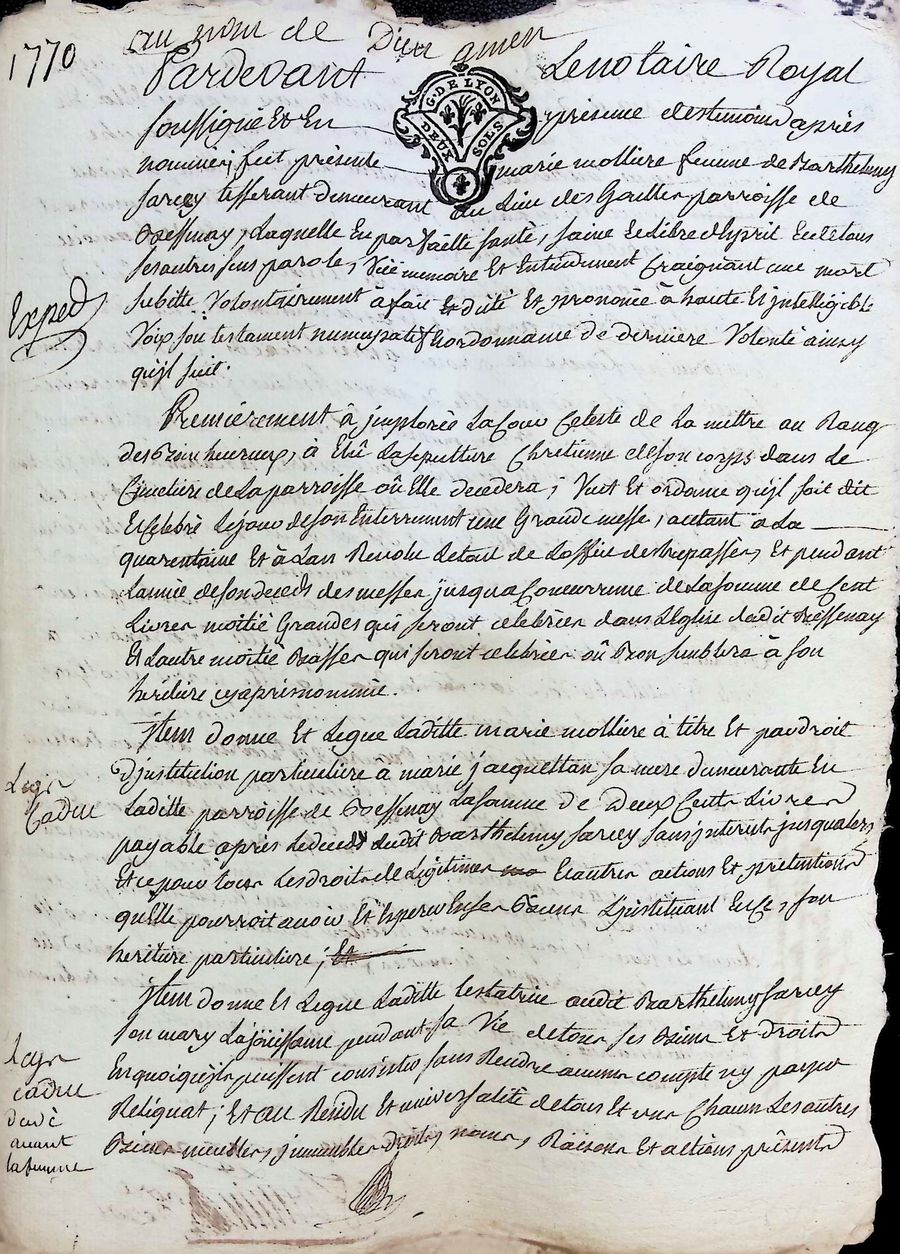 1770
au nom de Dieu amen
Pardevant Le notaire Royal
G. DE LYON
DEUX SOLS
soussigné Et En présence des temoins après
nommés, feut présente marie mollière femme de Barthelemy
farcey tisserant demeurant au Lieu des Gaultier parroisse de
Bessenay, Laquelle En parfaitte santé, saine Et Libre d'Esprit Et de tous
ses autres sens parole, Vüe memoire Et Entendement Craignant une mort
subitte Volontairement à fait Et dité Et prononcé à haute Et jntelligible
Exped
Voix son testament nuncupatif & hordonnance de derniere Volonté ainsy
qu'jl suit.
Premièrement à jmplorée La Cour Celeste de La mettre au Rang
des Bien heureux, à Elû La sepulture Chretienne de son corps dans Le
Cimetiere de La parroisse où Elle decedera; Veut Et ordonne qu'jl soit dit
Et celebré Le jour de son Enterrement une Grande messe, autant à La
quarentaine Et à L'an Revolu Le tout de L'office des trepassés, Et pendant
L'année de son decés des messes jusqua Concurrence de La somme de Cent
Livres moitié Grandes qui seront celebrées dans L'Eglise dudit Bessenay
Et L'autre moitié Basses qui seront celebrées où Bon semblera à son
heritiere cy apres nommée.
Jtem donne Et Legue Laditte marie mollière à titre Et par droit
d'jnstitution particuliere à marie jacquettan sa mere demeurante En
Legs
Caduc
Laditte parroisse de Bessenay La somme de Deux Cents Livres
payable après Le decés dudit Barthelemy farcey sans jnterets jusqualors
Et ce pour tous Les droits de Legitimes Et autres actions Et prétentions
qu'Elle pourroit avoir Et Esperer En ses Biens L'jnstituant En Ce, son
heritiere particuliere; Et
Jtem donne Et Legue Laditte testatrice audit Barthelemy farcey
son mary La joüissance pendant sa Vie de tous ses Biens Et Droits
Legs
caduc
decedé
avant
la femme
En quoi qu'jls puissent consister sans Rendre aucuns compte ny payer
Reliquat; Et au Residu Et universalité de tous Et uns Chacun Les autres
Biens meubles, jmmeubles Droits, noms, Raisons Et actions présents